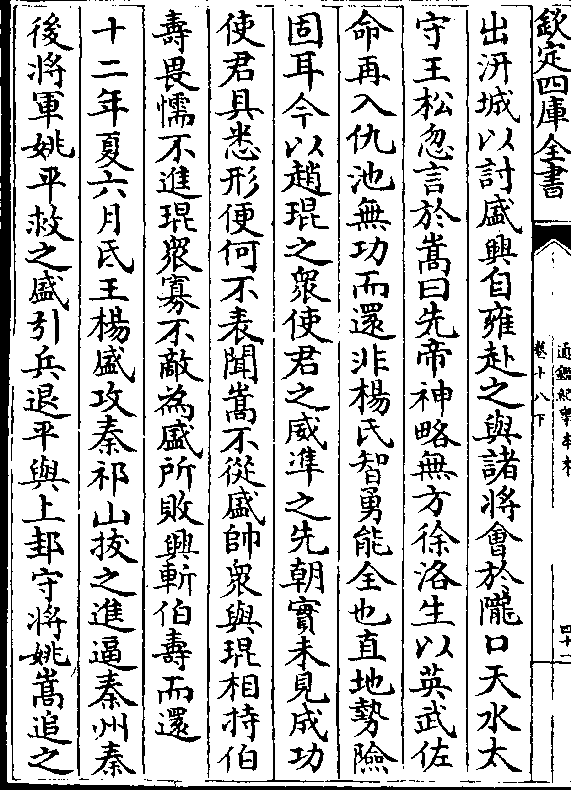 欽定四庫全書
通鑑紀事本末
卷十八下
四十二
出汧城以討盛興自雍赴之與諸將會於隴口天水太
守王松忽言於嵩曰先帝神略無方徐洛生以英武佐
命再入仇池無功而還非楊氏智勇能全也直地勢險
固耳今以趙琨之衆使君之威凖之先朝實未見成功
使君具悉形便何不表聞嵩不從盛帥衆與琨相持伯
壽畏懦不進琨衆寡不敵為盛所敗興斬伯壽而還
十二年夏六月氐王楊盛攻秦祁山拔之進逼秦州秦
後將軍姚平救之盛引兵退平與上邽守將姚嵩追之